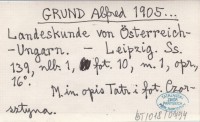 GRUND Alfred 1905...
Landeskunde von Österreich-
-Ungarn. — Leipzig. Ss.
139, nlb. 1, fot. 10, m. 1, opr,
16°.
M. in opis Tatr i fot. Czor-
sztyna.